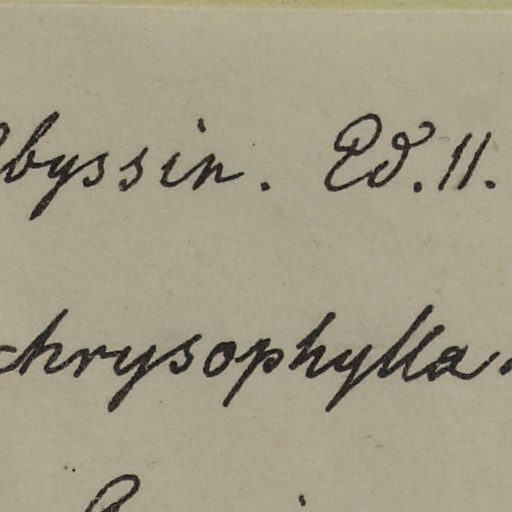 Abyssin. Ed. 11.
chrysophylla.